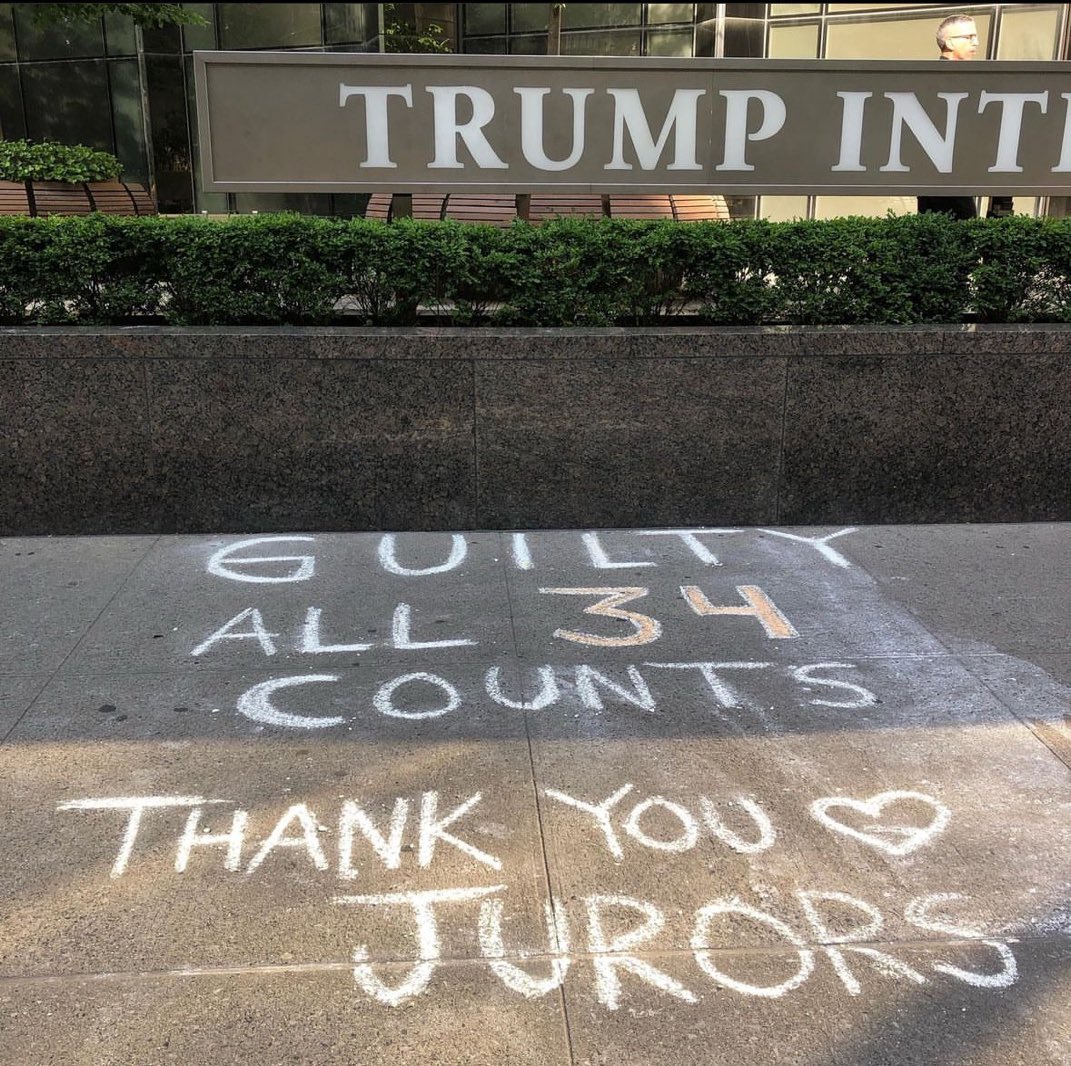 TRUMP INT
GUILTY
ALL 34
COUNTS
THANK YOU
JURORS